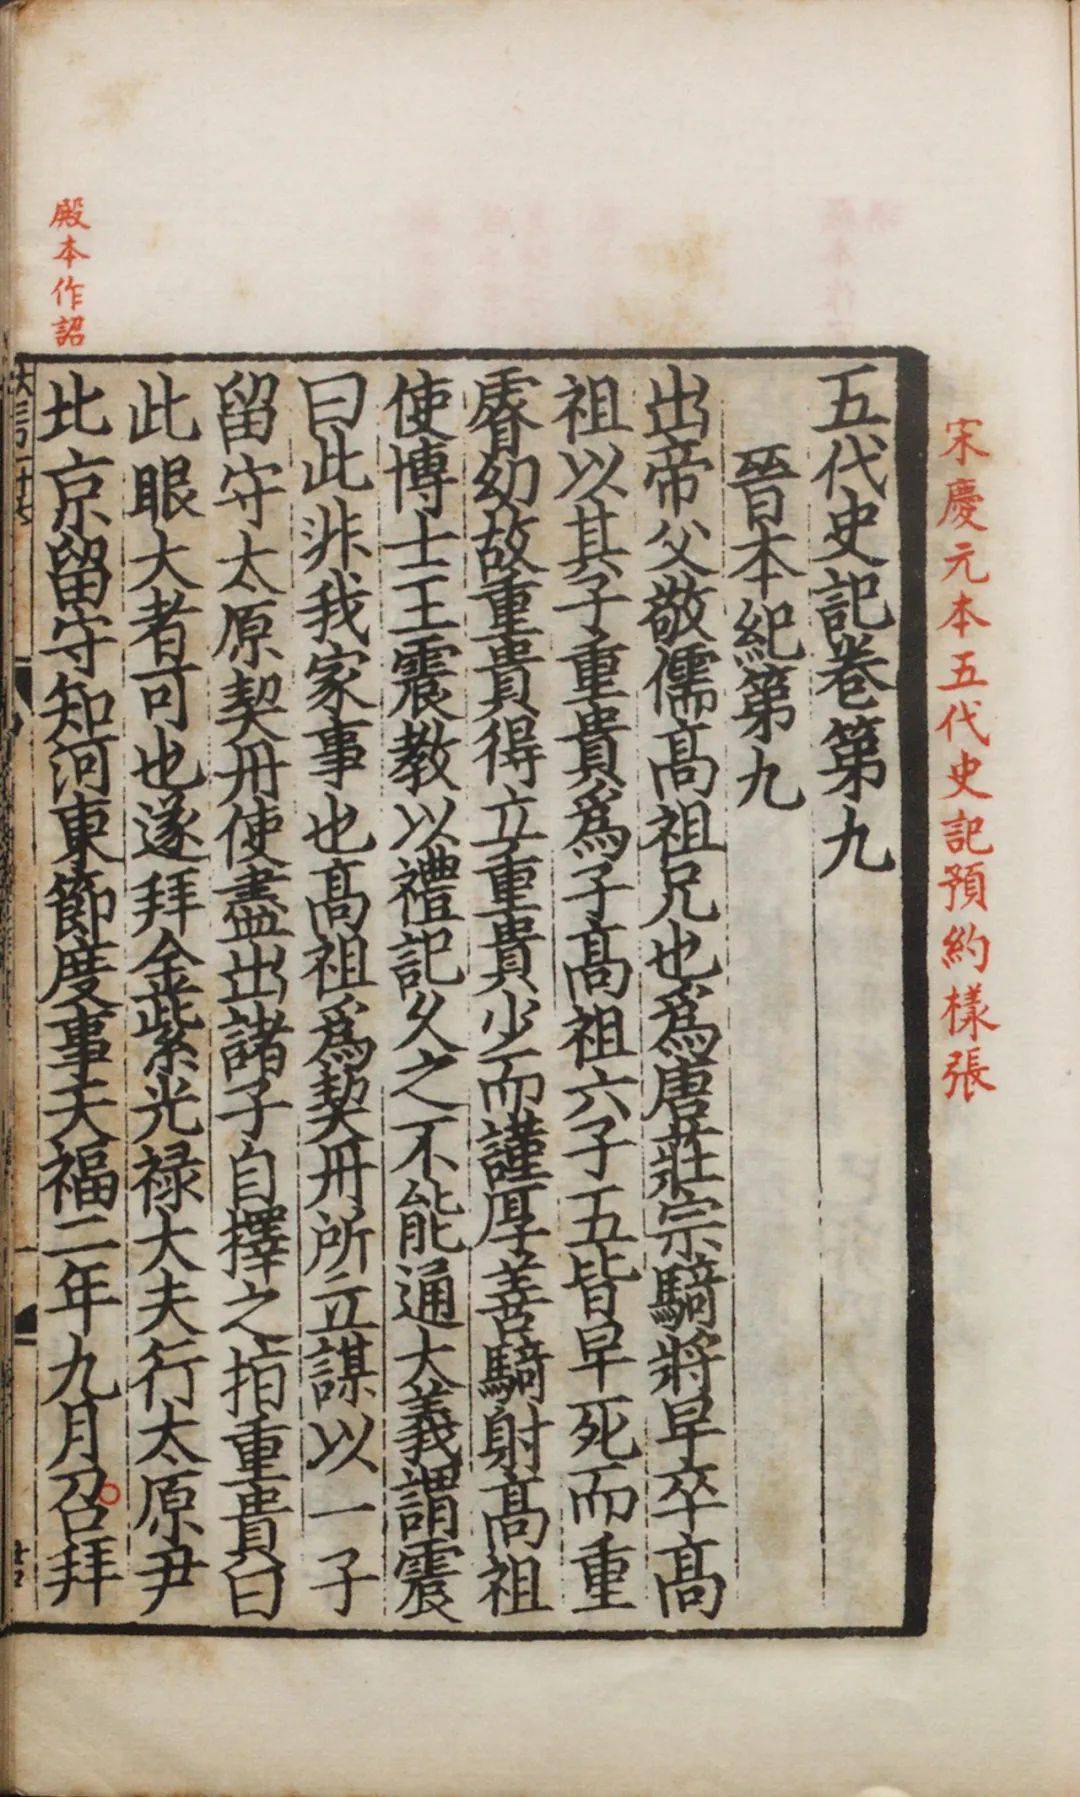 宋慶元本五代史記預約樣張
五代史記卷第九
晉本紀第九
出帝父敬儒髙祖兄也爲唐莊宗騎將早卒髙
祖以其子重貴爲子髙祖六子五皆早死而重
睿幼故重貴得立重貴少而謹厚善騎射髙祖
使博士王震教以禮記久之不能通大義謂震
曰此非我家事也髙祖爲契丹所立謀以一子
留守太原契丹使盡出諸子自擇之指重貴曰
此眼大者可也遂拜金紫光禄大夫行太原尹
北京留守知河東節度事天福二年九月召拜
殿本作詔